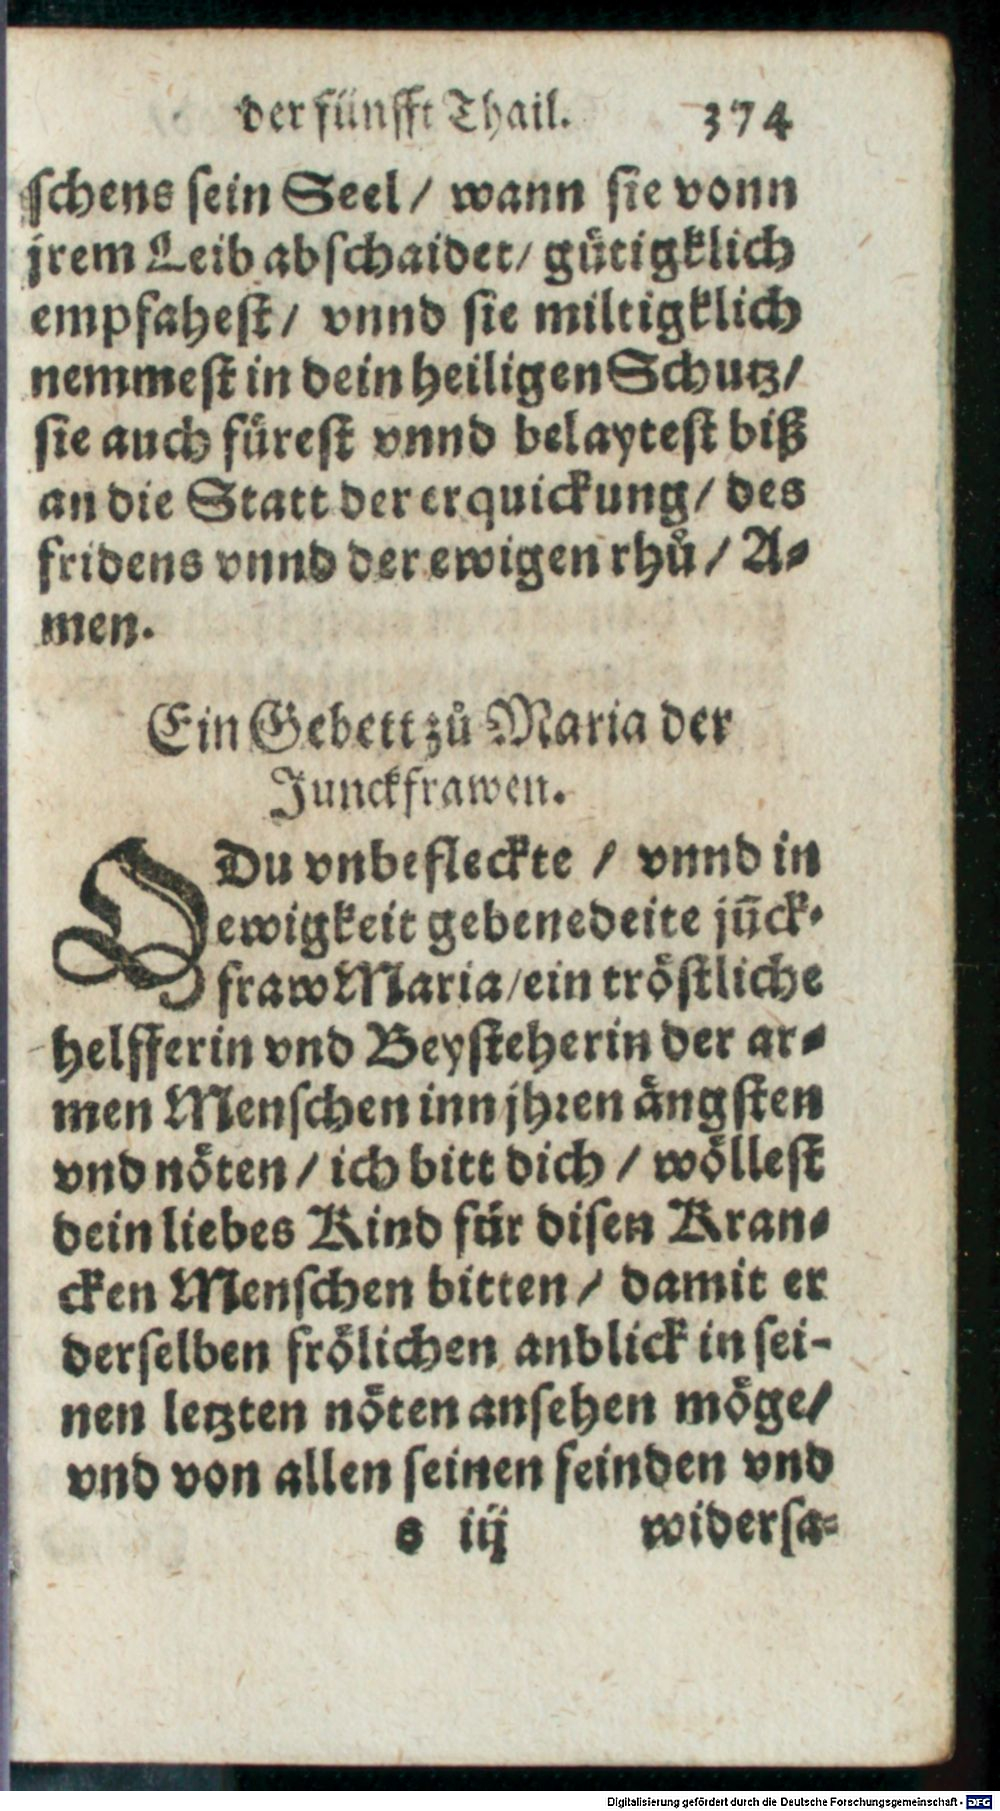 der fünfft Thail. 374
schens sein Seel / wann sie vonn
jrem Leib abschaidet / gütigklich
empfahest / vnnd sie miltigklich
nemmest in dein heiligen Schutz /
sie auch fürest vnnd belaytest biß
an die Statt der erquickung / des
fridens vnnd der ewigen rhů / A-
men.
Ein Gebett zů Maria der
Junckfrawen.
O Du vnbefleckte / vnnd in
ewigkeit gebenedeite jũck-
fraw Maria / ein tröstliche
helfferin vnd Beysteherin der ar-
men Menschen inn jhren ängsten
vnd nöten / ich bitt dich / wöllest
dein liebes Kind für disen Kran-
cken Menschen bitten / damit er
derselben frölichen anblick in sei-
nen letzten nöten ansehen möge /
vnd von allen seinen feinden vnd
s iij widersa-
Digitalisierung gefördert durch die Deutsche Forschungsgemeinschaft - DFG